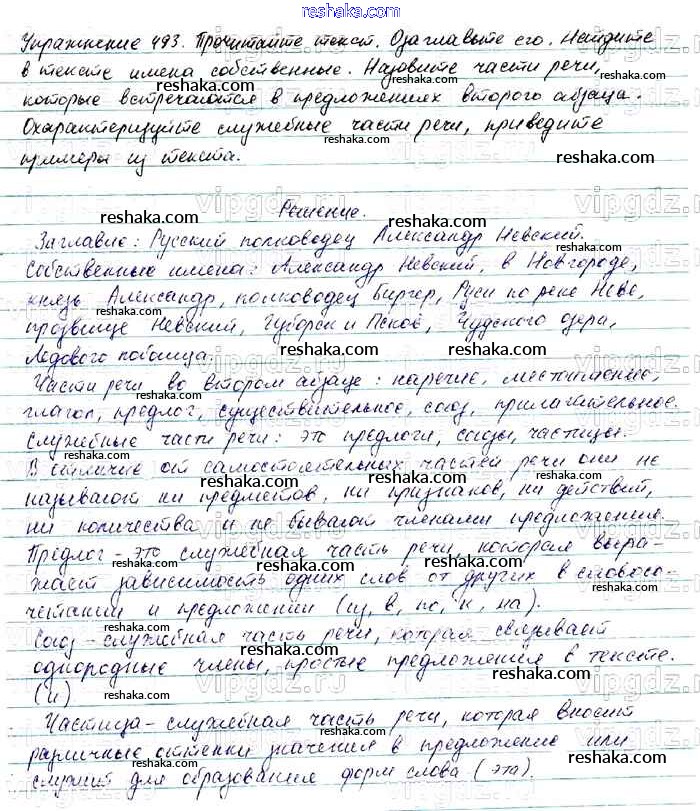 reshaka.com
Упражнение 493. Прочитайте текст. Озаглавьте его. Найдите
в тексте имена собственные. Назовите части речи,
которые встречаются в предложениях второго абзаца.
Охарактеризуйте служебные части речи, приведите
примеры из текста.
Решение.
Заглавие: Русский полководец Александр Невский.
Собственные имена: Александр Невский, в Новгороде,
князь Александр, полководец Биргер, Руси по реке Неве,
прозвище Невский, Изборск и Псков, Чудского озера,
Ледового побоища.
Части речи во втором абзаце: наречие, местоимение,
глагол, предлог, существительное, союз, прилагательное.
Служебные части речи: это предлоги, союзы, частицы.
В отличие от самостоятельных частей речи они не
называют ни предметов, ни признаков, ни действий,
ни количества и не бывают членами предложения.
Предлог - это служебная часть речи, которая выра-
жает зависимость одних слов от других в словосо-
четании и предложении (из, в, по, к, на).
Союз - служебная часть речи, которая связывает
однородные члены, простые предложения в тексте.
(и)
Частица - служебная часть речи, которая вносит
различные оттенки значения в предложение или
служит для образования форм слова (эта).